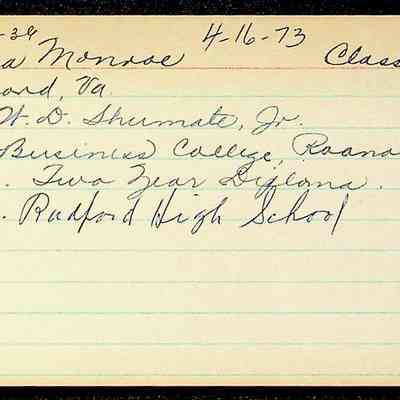 -39 4-16-73
a Monroe Class
ord, Va
W. D. Shumate, Jr.
Business College, Roano
. Two Year Diploma.
. Radford High School